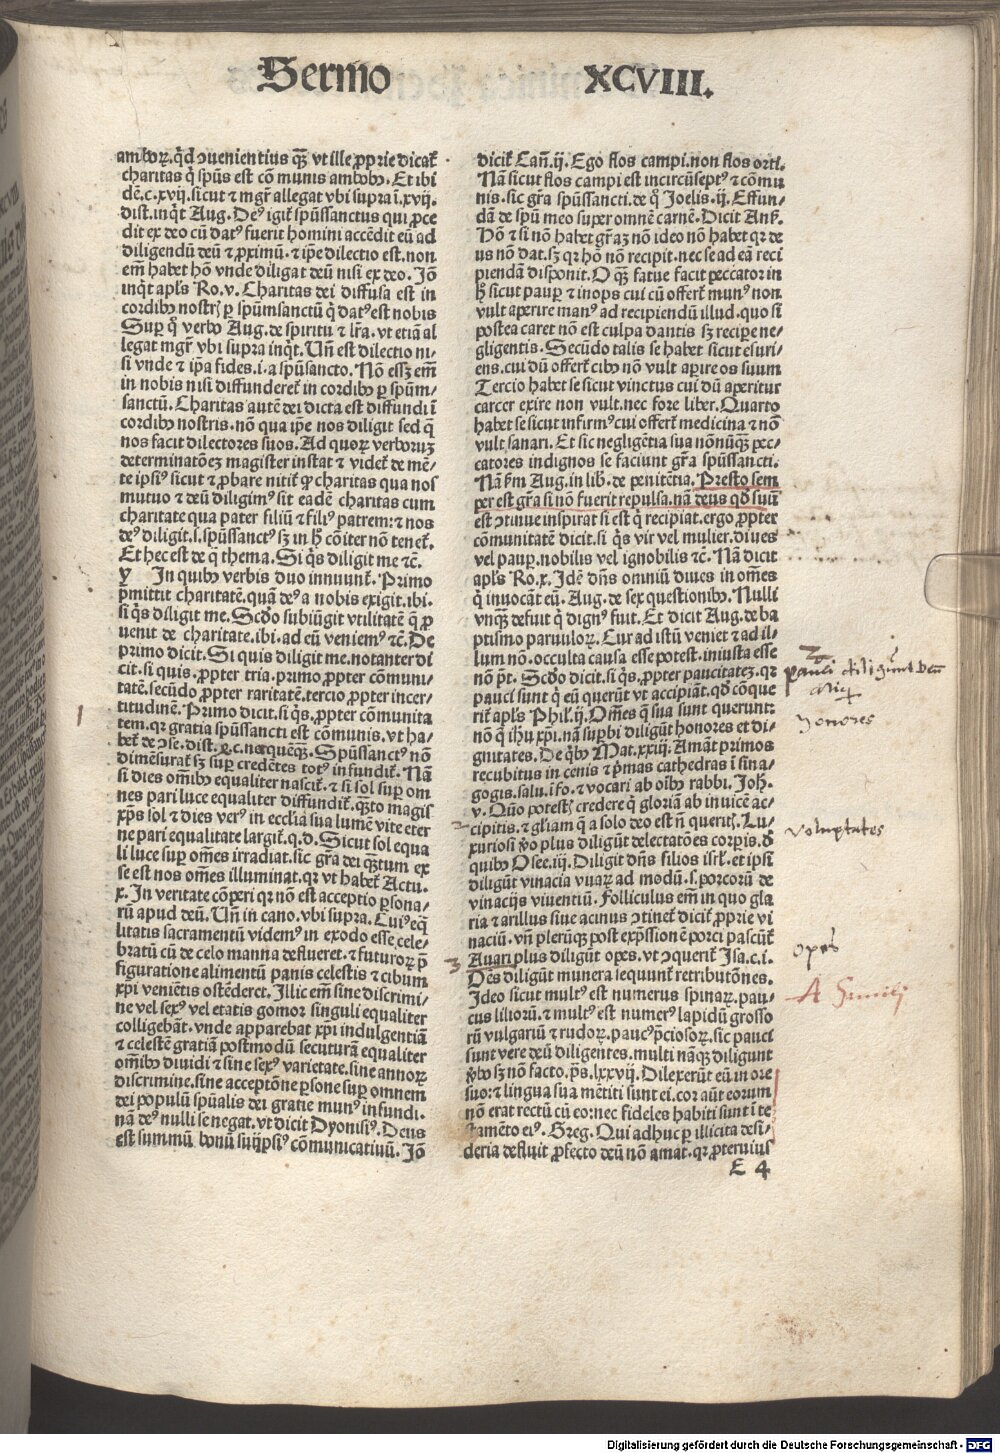 Sermo XCVIII.
amboꝝ. q̇d ↄuenientius qꝫ̃ vt ille ꝓprie dicat᷑
charitas q̇ spũs est cõmunis ambobꝰ. Et ibi
dẽ. c. xvij. sicut ⁊ mgr̃ allegat vbi supra i. xvij.
dist. inq̇t Aug. Deꝰ igit᷑ spũssanctus qui ꝓce
dit ex deo cũ datꝰ fuerit homini accẽdit eũ ad
diligendũ deũ ⁊ ꝓximũ. ⁊ ip̃e dilectio est. non
em̃ habet hõ vnde diligat deũ nisi ex deo. Jõ
inq̇t apl̃s Ro. v. Charitas dei diffusa est in
cordibꝰ nostrꝭ ꝑ spũmsanctũ q̇ datꝰ est nobis
Suꝑ q̊ verbo Aug. de spiritu ⁊ lr̃a. vt etiã al
legat mgr̃ vbi supra inq̇t. Uñ est dilectio ni-
si vnde ⁊ ip̃a fides. i. a spũsancto. Nõ essꝫ em̃
in nobis nisi diffunderet᷑ in cordibꝰ ꝑ spũm-
sanctũ. Charitas autẽ dei dicta est diffundi ĩ
cordibꝰ nostris. nõ qua ip̃e nos diligit sed q̃
nos facit dilectores suos. Ad quoꝝ verboruꝫ
determinatõeꝫ magister instat ⁊ videt᷑ de mẽ-
te ipsiꝰ sicut ⁊ ꝓbare nitit᷑ ꝙ charitas qua nos
mutuo ⁊ deũ diligimꝰ sit eadẽ charitas cum
charitate qua pater filiũ ⁊ filiꝰ patrem: ⁊ nos
deꝰ diligit. s. spũssanctꝰ sꝫ in h̊ cõiter nõ tenet᷑.
Et hec est de q̃ thema. Si q̇s diligit me ⁊c̃.
y In quibꝰ verbis duo innuunt᷑. Primo
ꝓmittit charitatẽ. quã deꝰ a nobis exigit. ibi.
si q̇s diligit me. Scd̃o subiũgit vtilitatẽ q̃ ꝓ
uenit de charitate. ibi. ad eũ veniemꝰ ⁊c̃. De
primo dicit. Si quis diligit me. notanter di
cit. si quis. ꝓpter tria. primo ꝓpter cõmuni-
tatẽ. secũdo ꝓpter raritatẽ. tercio ꝓpter incer-
titudinẽ. Primo dicit. si q̇s. ꝓpter cõmunita
tem. qꝛ gratia spũssancti est cõmunis. vt ha-
bet᷑ de ↄse. dist. c. neqꝫ quẽqꝫ. Spũssanctꝰ nõ
dimẽsurat᷑ sꝫ suꝑ credẽtes totꝰ infundit᷑. Nã
si dies om̃ibꝰ equaliter nascit᷑. ⁊ si sol suꝑ om
nes pari luce equaliter diffundit᷑. qꝫ̃to magis
xp̃s sol ⁊ dies verꝰ in ecclĩa sua lumẽ vite eter
ne pari equalitate largit᷑. q. d. Sicut sol equa
li luce suꝑ om̃es irradiat. sic gr̃a dei qꝫ̃tum ex
se est nos om̃es illuminat. qꝛ vt habet᷑ Actu.
x. In veritate cõperi qꝛ nõ est acceptio ꝑsona-
rũ apud deũ. Uñ in cano. vbi supra. Cuiꝰ eq̃
litatis sacramentũ videmꝰ in exodo esse cele-
bratũ cũ de celo manna deflueret. ⁊ futuroꝝ ꝑ
figurationẽ alimentũ panis celestis ⁊ cibum
xp̃i veniẽtis ostẽderet. Illic em̃ sine discrimi-
ne vel sexꝰ vel etatis gomor singuli equaliter
colligebãt. vnde apparebat xp̃i indulgentiã
⁊ celestẽ gratiã postmodũ secuturã equaliter
om̃ibꝰ diuidi ⁊ sine sexꝰ varietate. sine annoꝝ
discrimine. sine acceptõne ꝑsone suꝑ omnem
dei populũ spũalis dei gratie munꝰ infundi.
nã deꝰ nulli se negat. vt dicit Dyonisiꝰ. Deus
est summũ bonũ suijpsiꝰ cõmunicatiuũ. Jõ
dicit᷑ Cañ. ij. Ego flos campi. non flos orti.
Nã sicut flos campi est incircũseptꝰ ⁊ cõmu
nis. sic gr̃a spũssancti. de q̊ Joelis. ij. Effun-
dã de spũ meo super omnẽ carnẽ. Dicit Ans.
Hõ ⁊ si nõ habet gr̃aꝫ nõ ideo nõ habet qꝛ de
us nõ dat. sꝫ qꝛ hõ nõ recipit. nec se ad eã reci
piendã disponit. O qꝫ̃ fatue facit peccator in
h̊ sicut pauꝑ ⁊ inops cui cũ offert᷑ munꝰ non
vult aperire manꝰ ad recipiendũ illud. quo si
postea caret nõ est culpa dantis sꝫ recipe ne-
gligentis. Secũdo talis se habet sicut esuri-
ens. cui dũ offert᷑ cibꝰ nõ vult aꝑire os suum
Tercio habet se sicut vinctus cui dũ aperitur
carcer exire non vult. nec fore liber. Quarto
habet se sicut infirmꝰ cui offert᷑ medicina ⁊ nõ
vult sanari. Et sic negligẽtia sua nõnũqꝫ̃ pec-
catores indignos se faciunt gr̃a spũssancti.
Nã s̃m Aug. in lib. de penitẽtia. Presto sem
per est gr̃a si nõ fuerit repulsa. nã deus qd̃ suũ
est ↄtinue inspirat si est q̇ recipiat. ergo ꝓpter
cõmunitatẽ dicit. si q̇s vir vel mulier. diues
vel pauꝑ. nobilis vel ignobilis ⁊c̃. Nã dicit
apl̃s Ro. x. Idẽ dñs omniũ diues in om̃es
q̇ inuocãt eũ. Aug. de sex questionibꝰ. Nulli
vnqꝫ̃ defuit q̇ dignꝰ fuit. Et dicit Aug. de ba
ptismo paruuloꝝ. Cur ad istũ veniet ⁊ ad il-
lum nõ. occulta causa esse potest. iniusta esse
nõ p̃t. Scd̃o dicit. si q̇s. ꝓpter paucitateꝫ. qꝛ
pauci sunt q̇ eũ querũt vt accipiãt. qd̃ cõque
rit᷑ apl̃s Phil̃. ij. Om̃es q̃ sua sunt querunt:
nõ q̃ ih̃u xp̃i. nã suꝑbi diligũt honores et di-
gnitates. De q̇bꝰ Mat. xxiij. Amãt primos
recubitus in cenis ⁊ p̃mas cathedras ĩ sina-
gogis. salu. ĩ fo. ⁊ vocari ab oĩbꝰ rabbi. Joh̃.
v. Quõ potestꝭ credere q̇ gloriã ab inuicẽ ac-
cipitis. ⁊ gl̃iam q̃ a solo deo est ñ queritꝭ. Lu-
xuriosi v̊o plus diligũt delectatões corꝑis. d̃
quibꝰ Osee. iij. Diligit dñs filios isrl̃. et ipsi
diligũt vinacia vuaꝝ ad modũ. s. porcorũ de
vinacijs viuentiũ. Folliculus em̃ in quo gla
ria ⁊ arillus siue acinus ↄtinet᷑ dicit᷑ ꝓprie vi
naciũ. vñ plerũqꝫ post exp̃ssionẽ porci pascũt᷑
Auari plus diligũt opes. vt ↄquerit᷑ Isa. c. i.
Oẽs diligũt munera sequunt᷑ retributões.
Ideo sicut multꝰ est numerus spinaꝝ. pau-
cus liliorũ. ⁊ multꝰ est numerꝰ lapidũ grosso
rũ vulgariũ ⁊ rudoꝝ. paucꝰ p̃ciosoꝝ. sic pauci
sunt vere deũ diligentes. multi nãqꝫ diligunt
v̊bo sꝫ nõ facto. p̃s. lxxvij. Dilexerũt eũ in ore
suo: ⁊ lingua sua mẽtiti sunt ei. cor aũt eorum
nõ erat rectũ cũ eo: nec fideles habiti sunt ĩ te
stamẽto eiꝰ. Greg. Qui adhuc ꝑ illicita desi-
deria defluit ꝓfecto deũ nõ amat. qꝛ ꝓteruius
E 4
1
2
3
pauci diligunt deum
honores
voluptates
opes
Digitalisierung gefördert durch die Deutsche Forschungsgemeinschaft - DFG